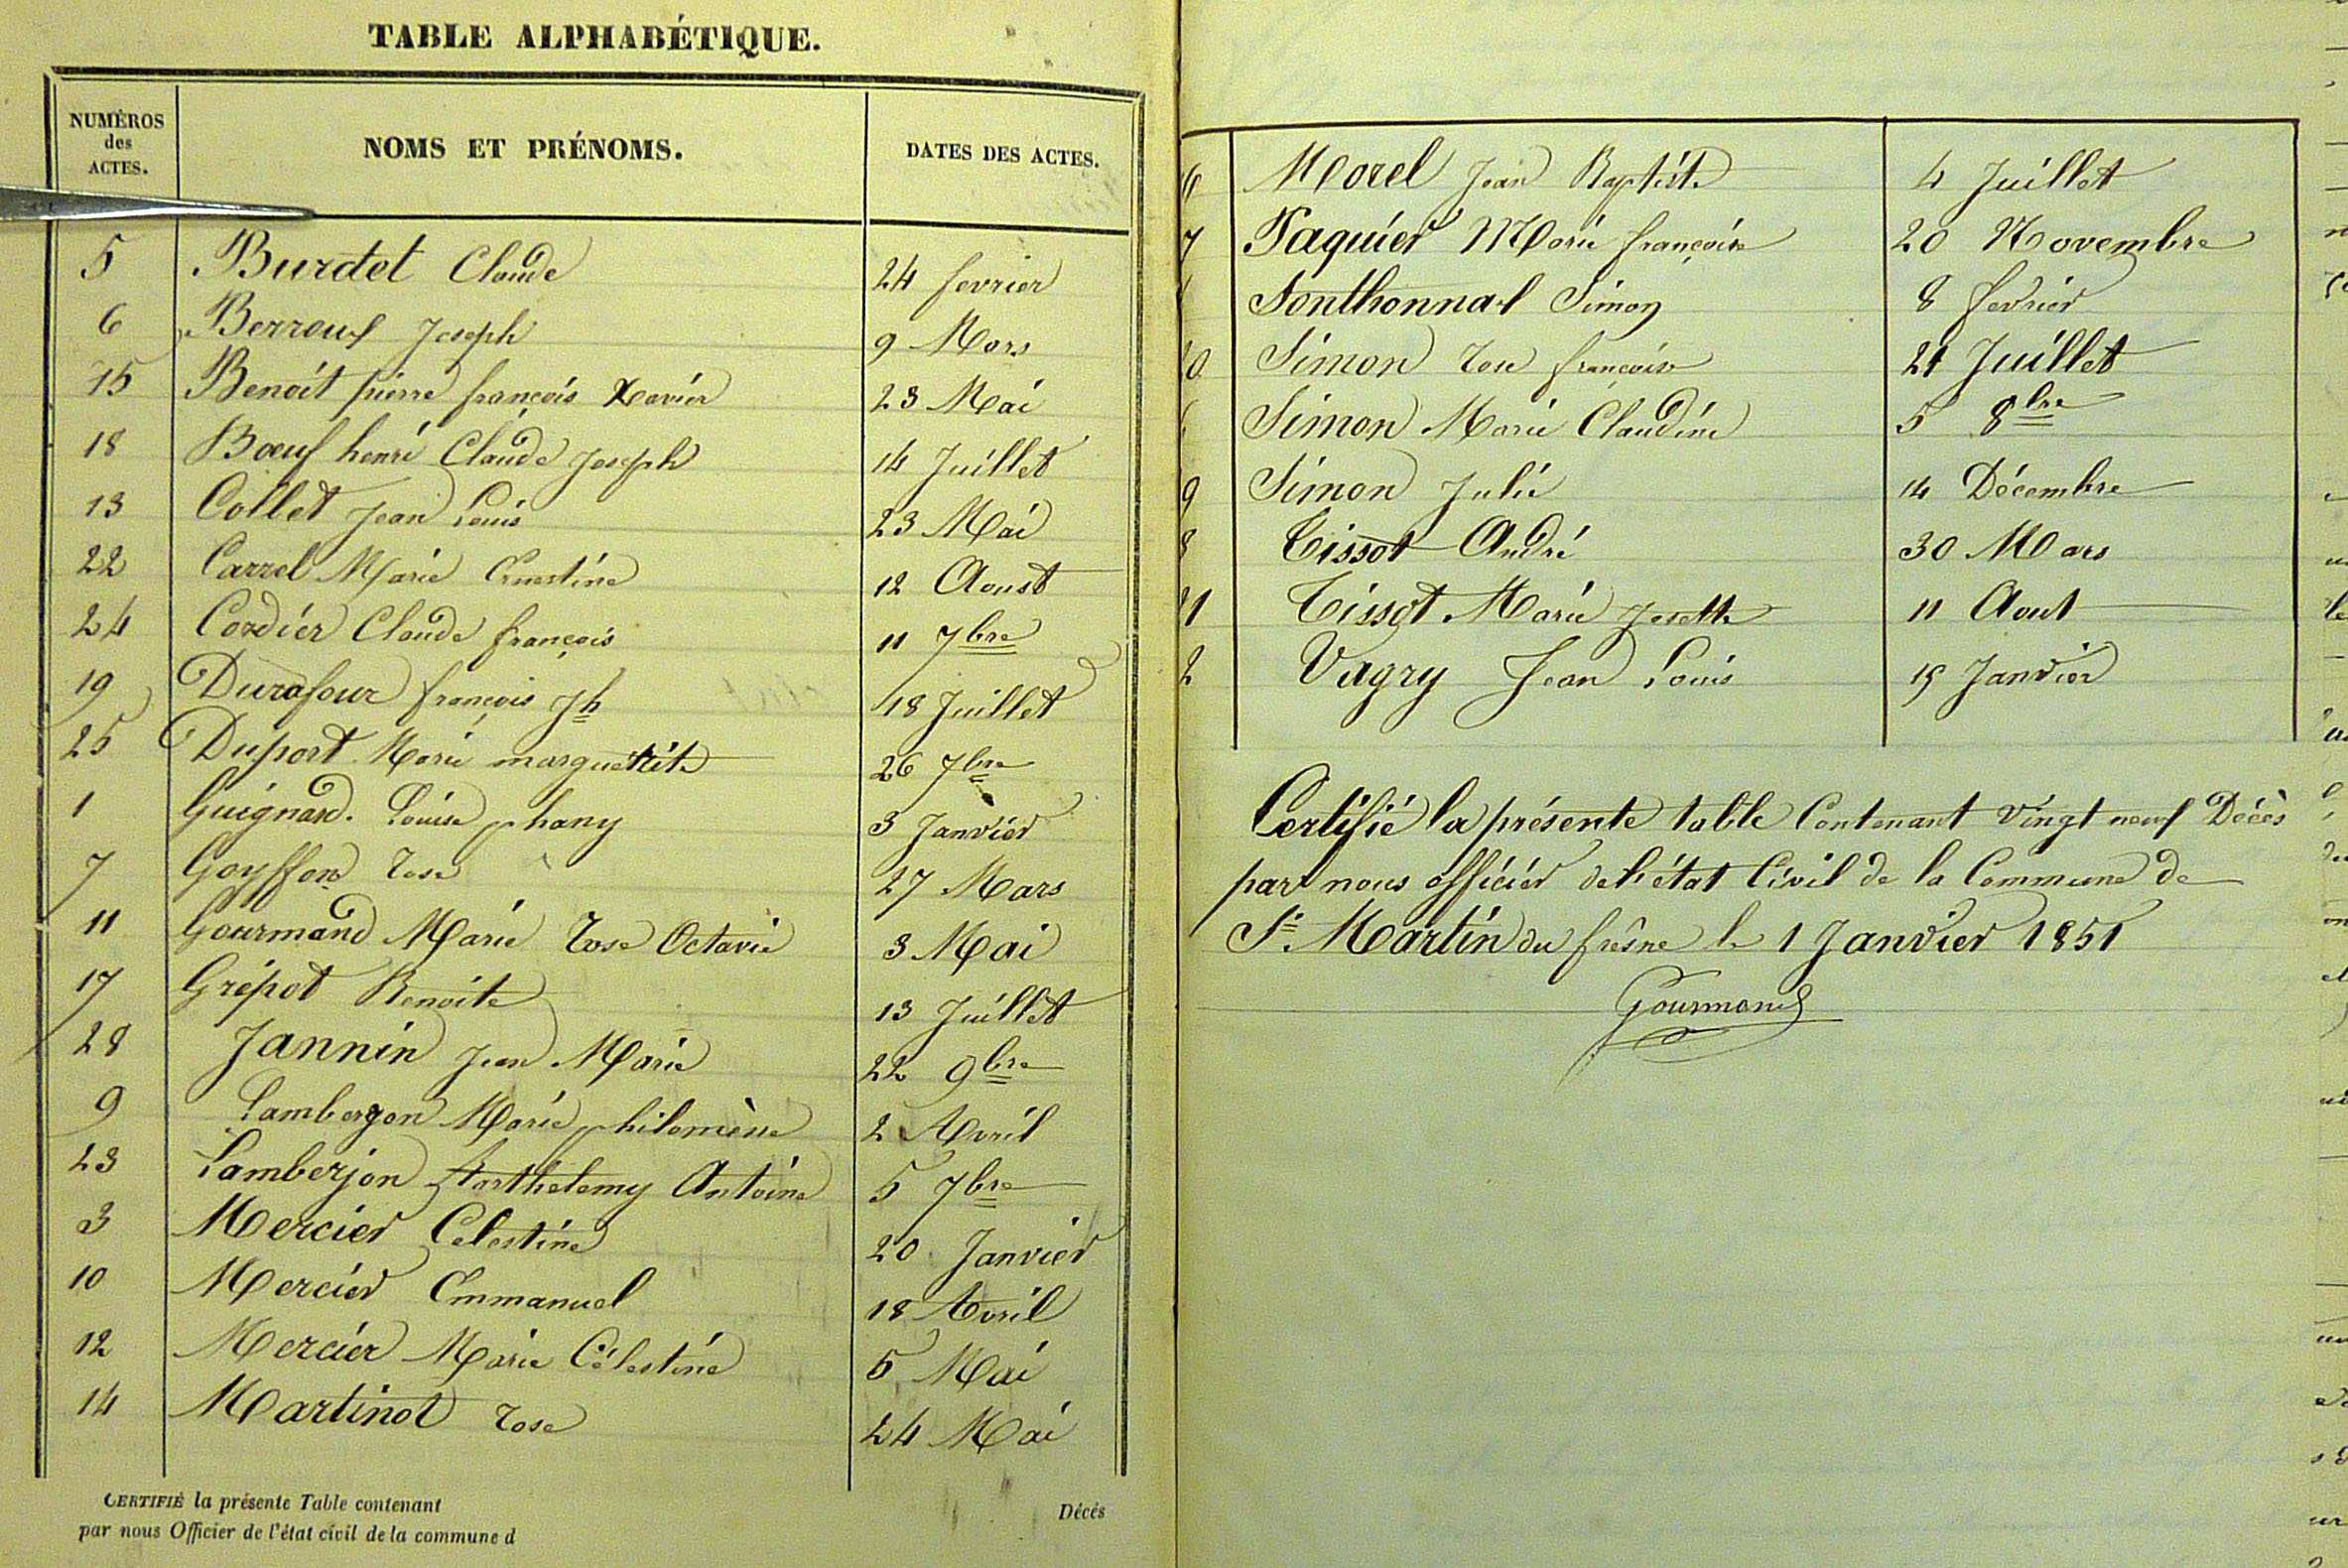 TABLE ALPHABÉTIQUE.
NUMÉROS des ACTES. NOMS ET PRÉNOMS. DATES DES ACTES.
5 Burdet Claude 24 fevrier
6 Berrouf Joseph 9 Mars
15 Benoit pierre françois Xavier 23 Mai
18 Bœuf henri Claude Joseph 14 Juillet
13 Collet Jean Louis 23 Mai
22 Carrel Marie Ernestine 12 Aoust
24 Cordier Claude françois 11 7bre
19 Durafour françois Jh 18 Juillet
25 Duport Marie marguerite 26 7bre
1 Guignard. Louise phany 3 Janvier
7 Goyffon Rose 27 Mars
11 Gourmand Marie Rose Octavie 3 Mai
17 Grépot Benoite 13 Juillet
28 Jannin Jean Marie 22 9bre
9 Lambergon Marie philomène 2 Avril
23 Lamberjon Barthelemy Antoine 5 7bre
3 Mercier Celestine 20 Janvier
10 Mercier Emmanuel 18 Avril
12 Mercier Marie Célestine 5 Mai
14 Martinot Rose 24 Mai
CERTIFIÉ la présente Table contenant Décès
par nous Officier de l'état civil de la commune d
6 Morel Jean Baptiste 4 Juillet
7 Paquier Marie françoise 20 Novembre
Sonthonnal Simon 8 fevrier
0 Simon Rose françoise 21 Juillet
Simon Marie Claudine 5 8bre
9 Simon Julie 14 Décembre
8 Tissot André 30 Mars
21 Tissot Marie Josette 11 Aout
2 Vagry Jean Louis 15 Janvier
Certifié la présente table Contenant vingt neuf Décès
par nous officier de l'état Civil de la Commune de
St. Martin du fresne le 1 Janvier 1851
Gourmand